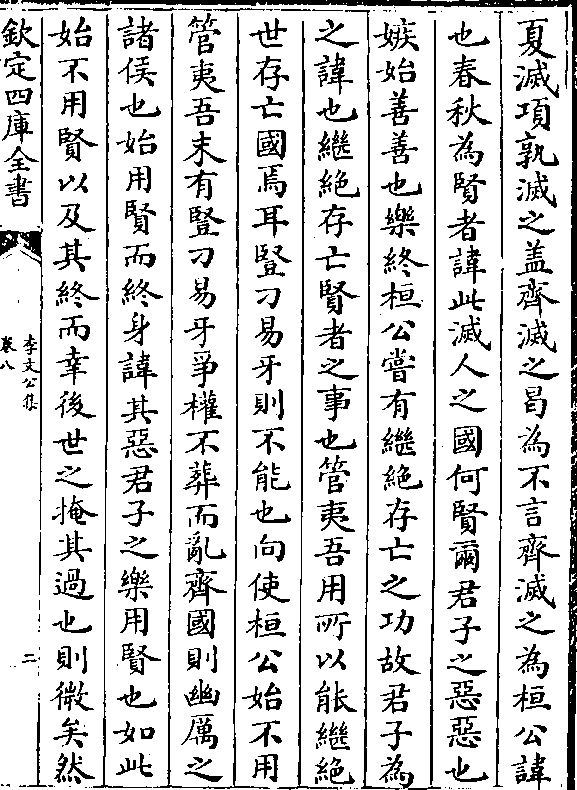 夏滅項孰滅之盖齊滅之曷為不言齊滅之為桓公諱
也春秋為賢者諱此滅人之國何賢爾君子之惡惡也
嫉始善善也樂終桓公嘗有繼絶存亡之功故君子為
之諱也繼絶存亡賢者之事也管夷吾用所以能繼絶
世存亡國焉耳豎刁易牙則不能也向使桓公始不用
管夷吾末有豎刁易牙爭權不葬而亂齊國則幽厲之
諸侯也始用賢而終身諱其惡君子之樂用賢也如此
始不用賢以及其終而幸後世之掩其過也則微矣然
欽定四庫全書
李文公集
卷八
二